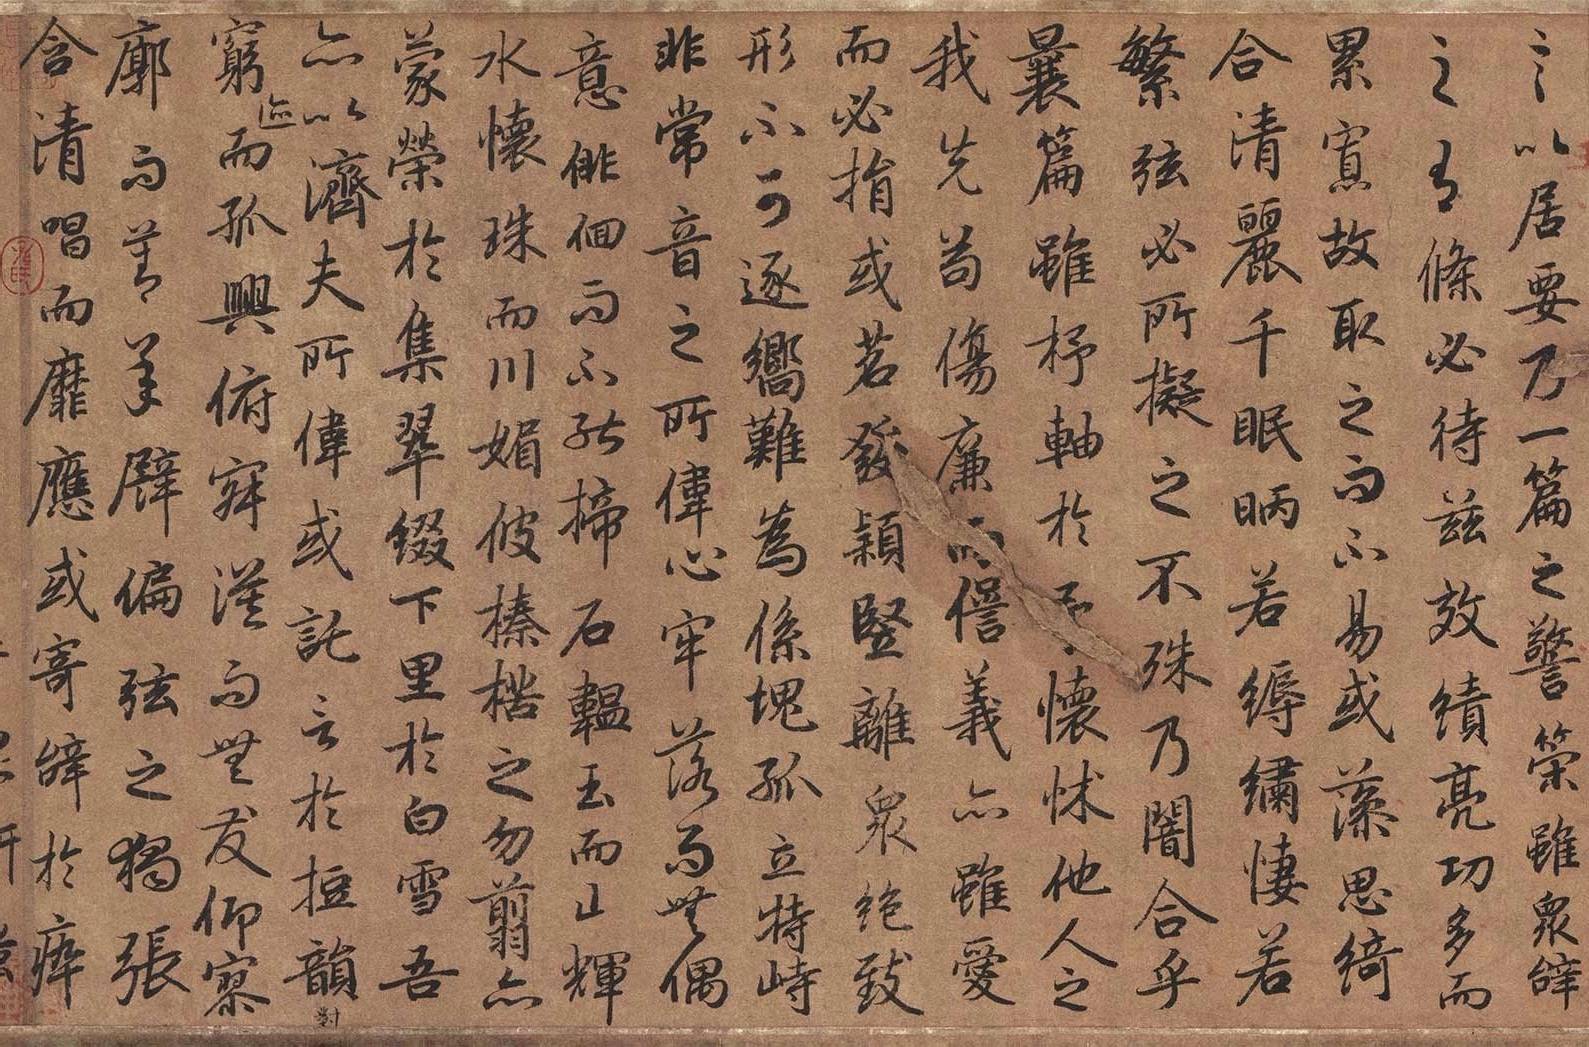 之以居要乃一篇之警策雖衆辞
之有條必待茲效績亮功多而
累寡故取之而不易或藻思綺
合清麗千眠昞若縟繡悽若
繁弦必所擬之不殊乃闇合乎
曩篇雖杼軸於予懷怵他人之
我先苟傷廉而愆義亦雖愛
而必捐或苕發穎豎離衆絶致
形不可逐響難為係塊孤立特峙
非常音之所偉心牢落而無偶
意俳佪而不能揥石韞玉而山輝
水懷珠而川媚彼榛楛之勿翦亦
蒙榮於集翠綴下里於白雪吾
亦以濟夫所偉或託言於短韻
對
窮迹而孤興俯寂漠而無友仰寥
廓而莫承譬偏弦之獨張
含清唱而靡應或寄辞於瘁